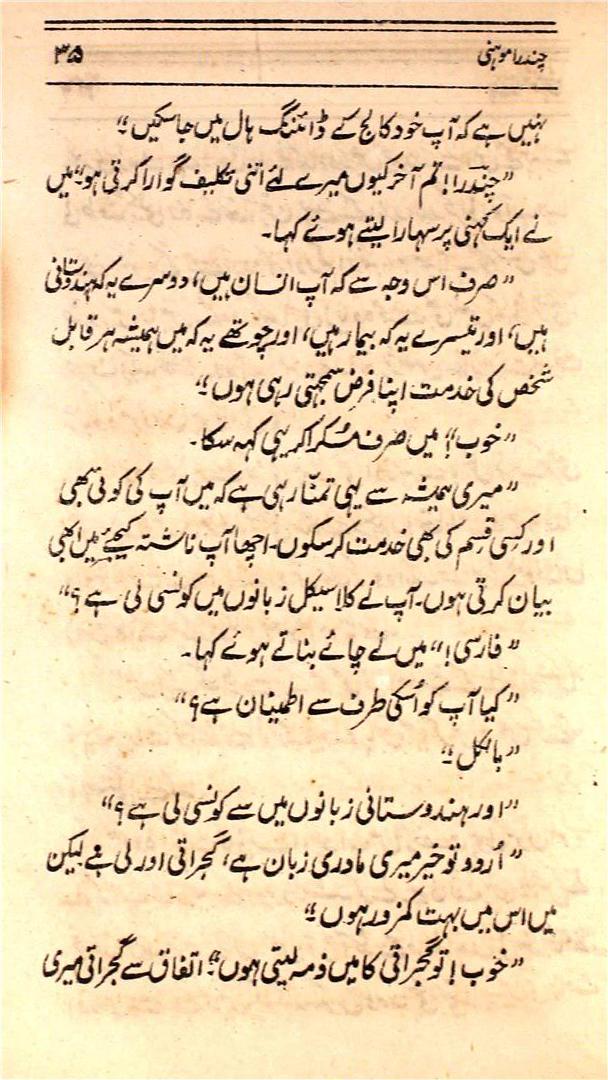 چندرا موہنی ۳۵
نہیں ہے کہ آپ خود کالج کے ڈائننگ ہال میں جا سکیں۔“
”چندرا! تم آخر کیوں میرے لئے اتنی تکلیف گوارا کرتی ہو“ میں
نے ایک کہنی پر سہارا لیتے ہوئے کہا۔
”صرف اس وجہ سے کہ آپ انسان ہیں، دوسرے یہ کہ ہندوستانی
ہیں، اور تیسرے یہ کہ بیمار ہیں، اور چوتھے یہ کہ میں ہمیشہ ہر قابل
شخص کی خدمت اپنا فرض سمجھتی رہی ہوں۔“
”خوب“! میں صرف مسکرا کر یہی کہہ سکا۔
”میری ہمیشہ سے یہی تمنّا رہی ہے کہ میں آپ کی کوئی بھی
اور کسی قسم کی بھی خدمت کر سکوں۔ اچھا آپ ناشتہ کیجئے میں ابھی
بیان کرتی ہوں۔ آپ نے کلاسیکل زبانوں میں کونسی لی ہے؟“
”فارسی!“ میں نے چائے بناتے ہوئے کہا۔
”کیا آپ کو اُسکی طرف سے اطمینان ہے؟“
”بالکل۔“
”اور ہندوستانی زبانوں میں سے کونسی لی ہے؟“
”اُردو تو خیر میری مادری زبان ہے، گجراتی اور لی ہے لیکن
میں اس میں بہت کمزور ہوں۔“
”خوب! تو گجراتی کا میں ذمہ لیتی ہوں“۔ اتفاق سے گجراتی میری